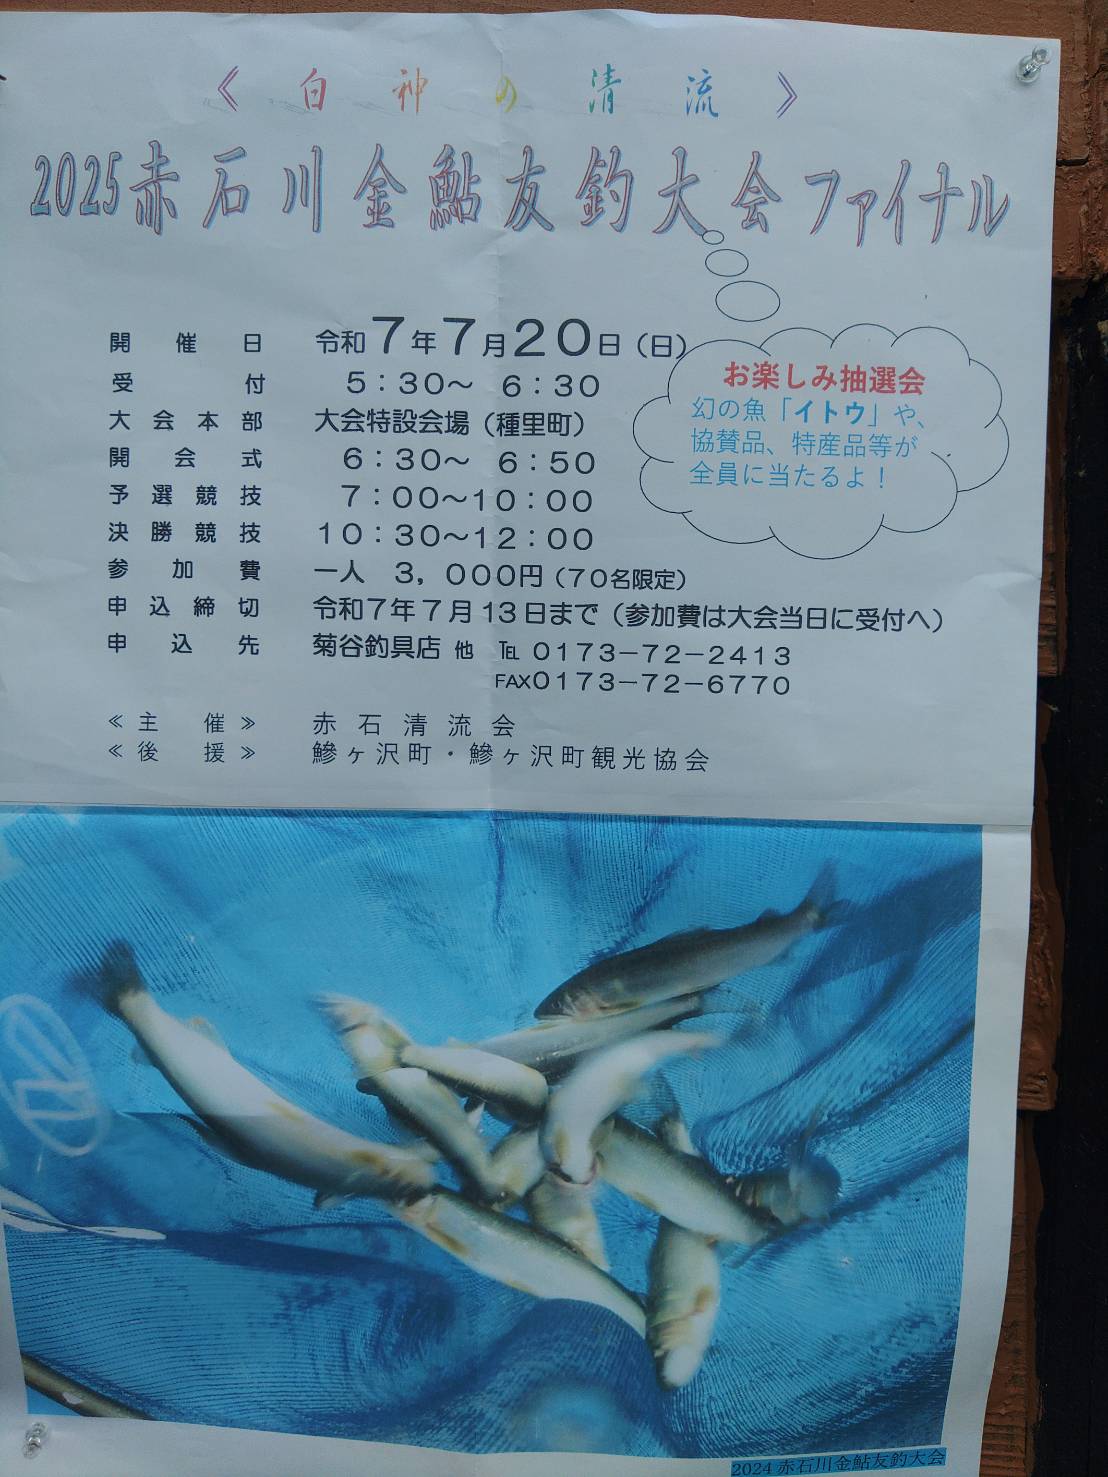 《白神の清流》
2025赤石川金鮎友釣大会ファイナル
開催日 令和7年7月20日(日)
受付 5:30〜 6:30
大会本部 大会特設会場(種里町)
開会式 6:30〜 6:50
予選競技 7:00〜10:00
決勝競技 10:30〜12:00
参加費 一人 3,000円(70名限定)
申込締切 令和7年7月13日まで(参加費は大会当日に受付へ)
申込先 菊谷釣具店 他 ℡ 0173-72-2413
FAX0173-72-6770
≪主催≫ 赤石清流会
≪後援≫ 鰺ヶ沢町・鰺ヶ沢町観光協会
お楽しみ抽選会
幻の魚「イトウ」や、
協賛品、特産品等が
全員に当たるよ!
2024 赤石川金鮎友釣大会